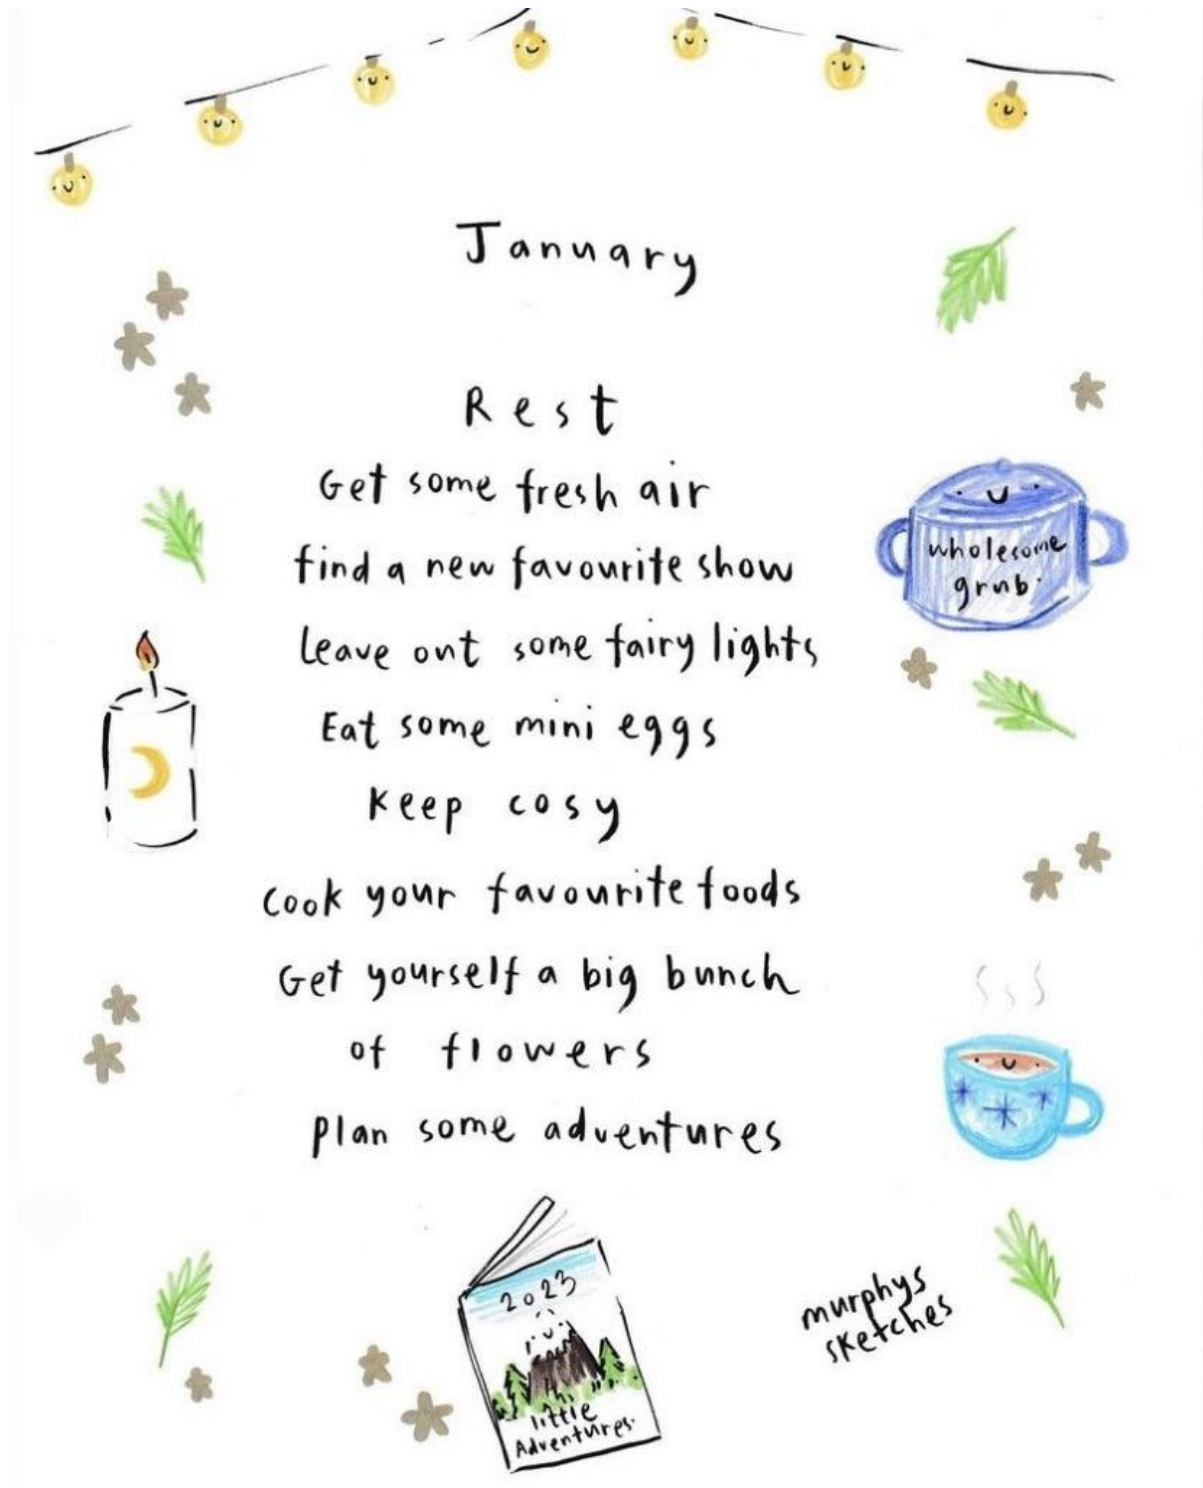 January
Rest
Get some fresh air
find a new favourite show
wholesome
grub.
Leave out some fairy lights
Eat some mini eggs
Keep cosy
Cook your favourite foods
Get yourself a big bunch
of flowers
plan some adventures
2023
little
Adventures.
murphys
sketches